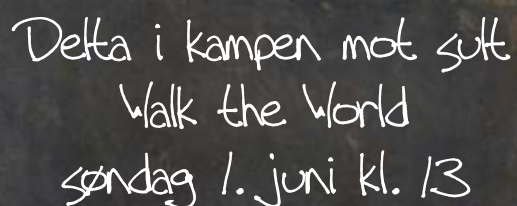 Delta i kampen mot sult
Walk the World
søndag 1. juni kl. 13